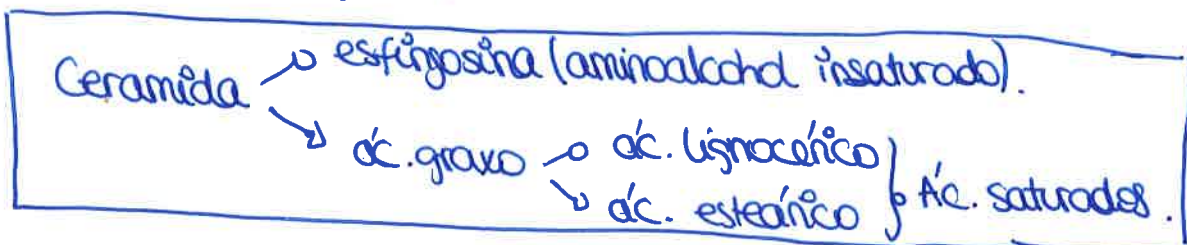 Ceramida → esfingosina (aminoalcohol insaturado).
→ ác. graxo → ác. lignocérico
→ ác. esteárico } Ác. saturados.